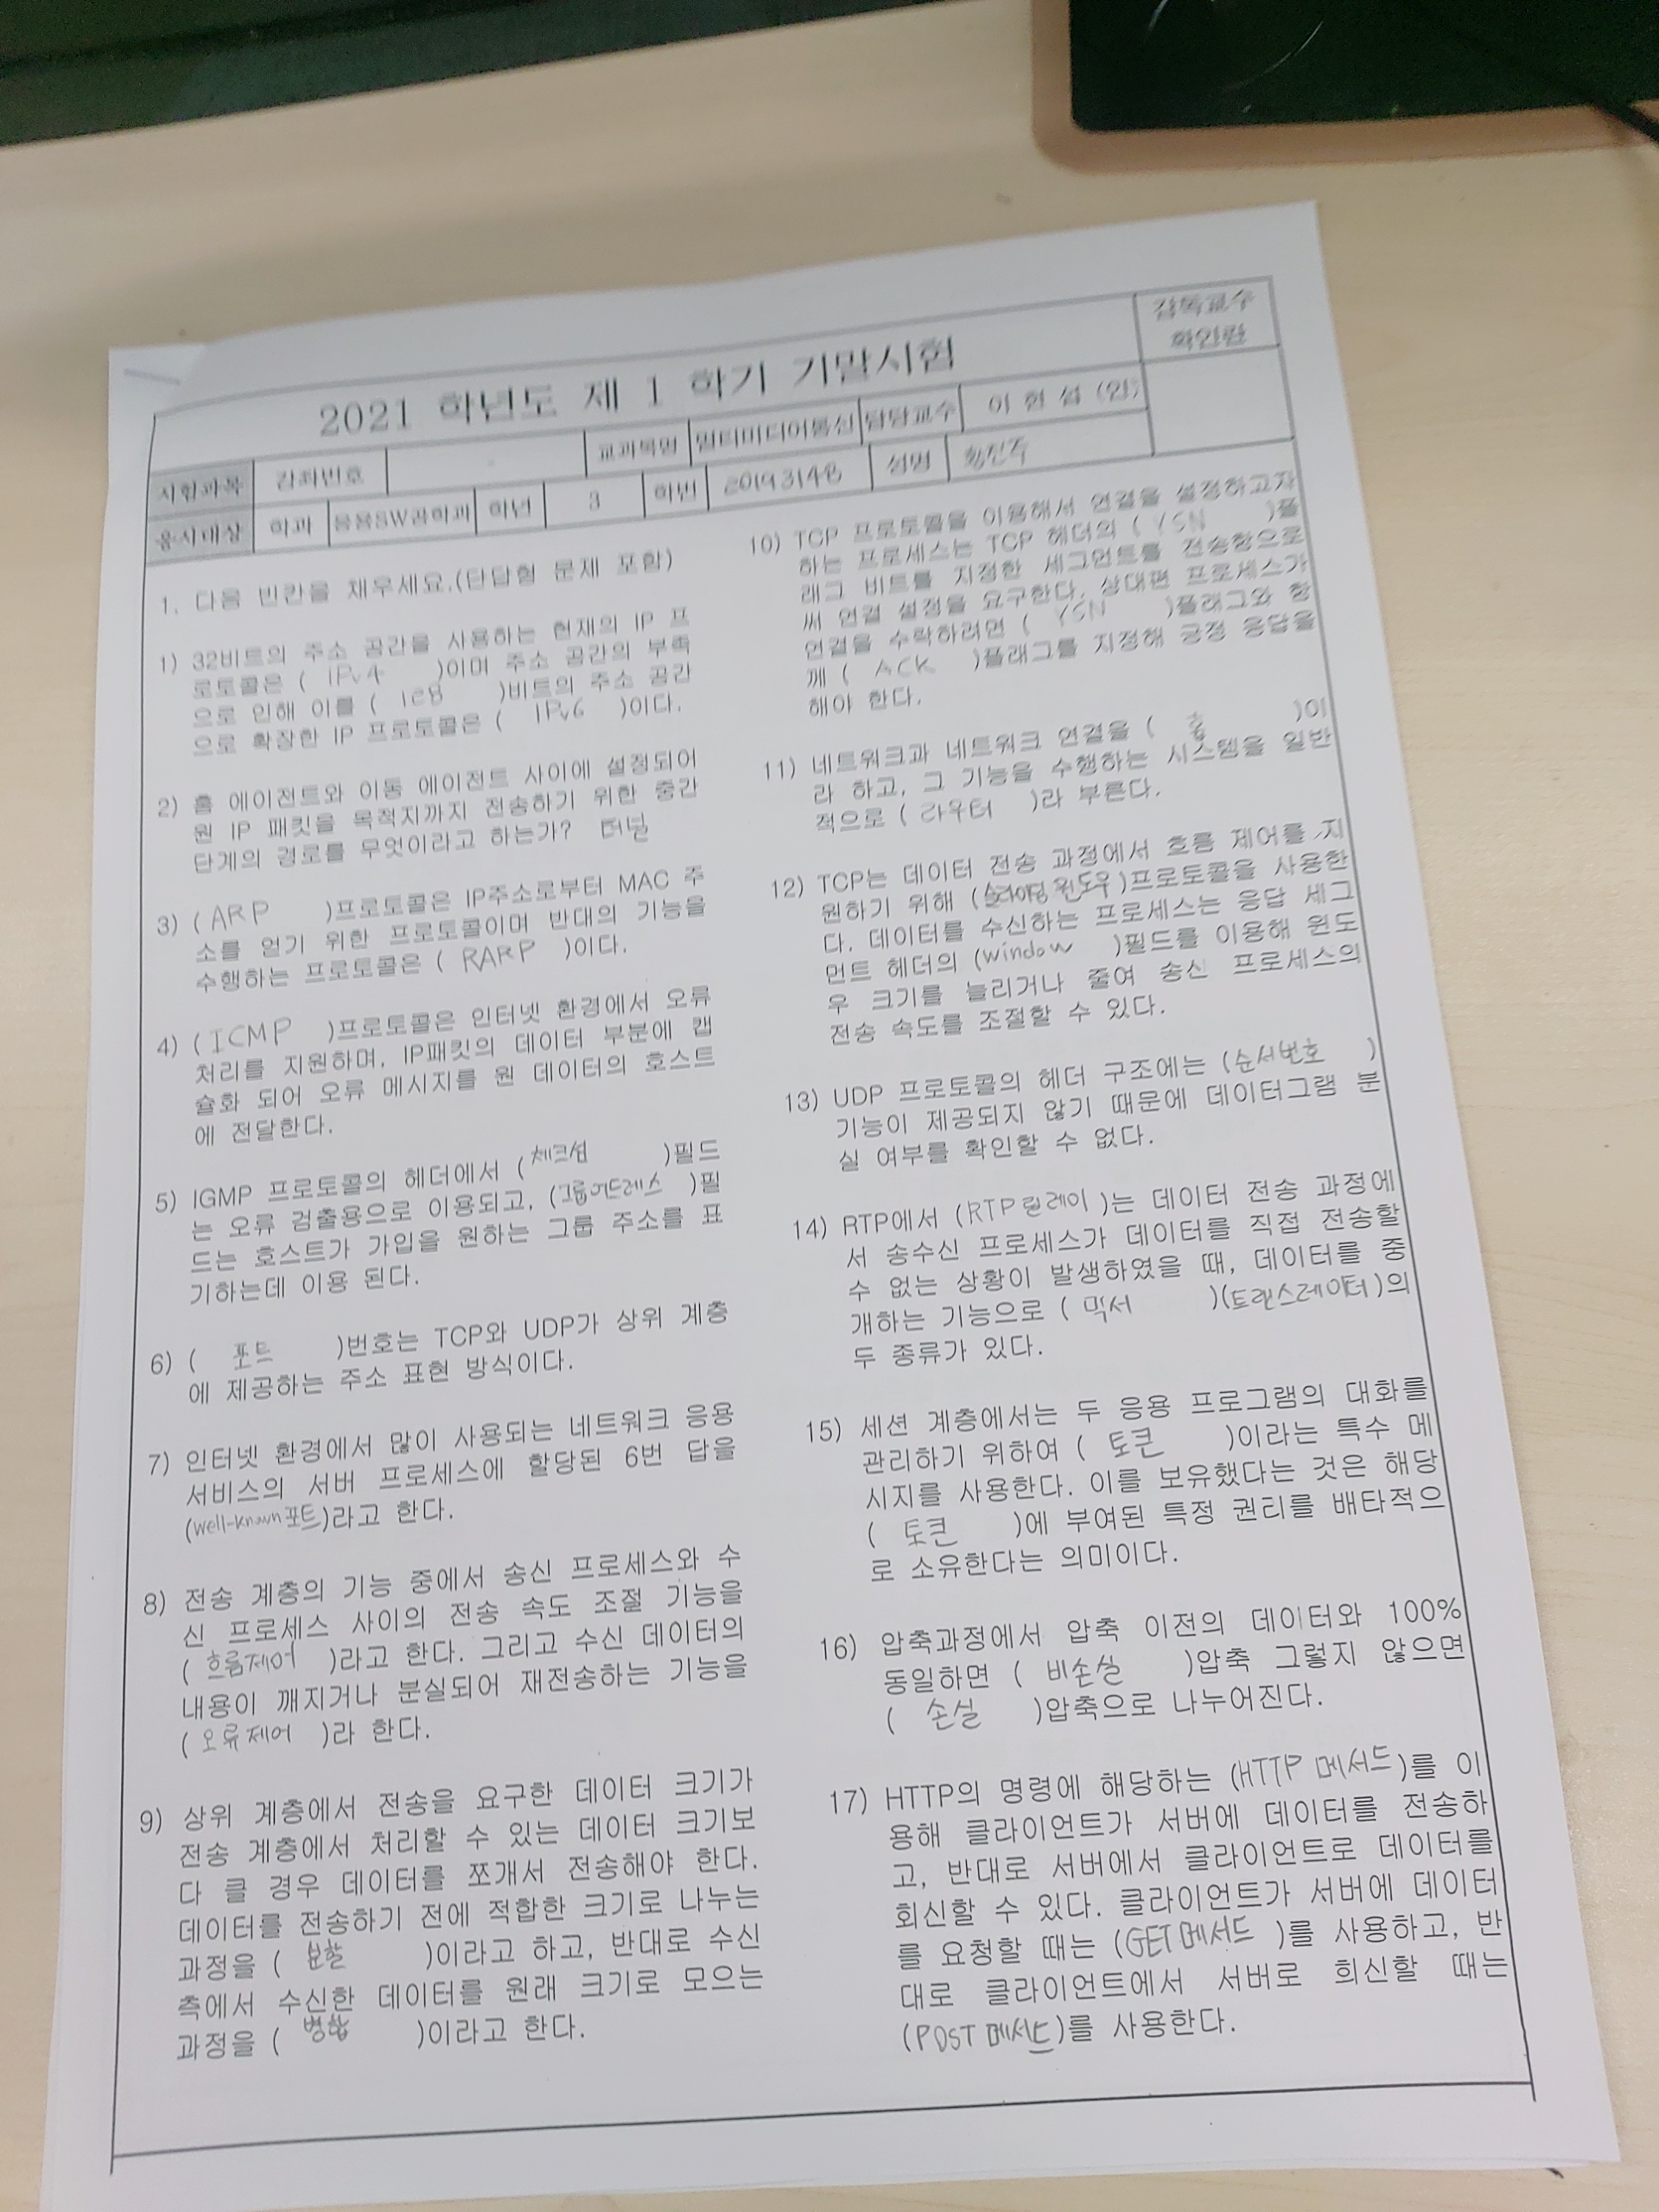 2021 학년도 제 1 학기 기말시험
감독교수
확인란
시험과목 강좌번호 교과목명 멀티미디어통신 담당교수 이 현 섭 (인)
응시대상 학과 응용SW공학과 학년 3 학번 성명
1. 다음 빈칸을 채우세요.(단답형 문제 포함)
1) 32비트의 주소 공간을 사용하는 현재의 IP 프
로토콜은 ( IPv4 )이며 주소 공간의 부족
으로 인해 이를 ( 128 )비트의 주소 공간
으로 확장한 IP 프로토콜은 ( IPv6 )이다.
2) 홈 에이전트와 이동 에이전트 사이에 설정되어
원 IP 패킷을 목적지까지 전송하기 위한 중간
단계의 경로를 무엇이라고 하는가? 터널
3) ( ARP )프로토콜은 IP주소로부터 MAC 주
소를 얻기 위한 프로토콜이며 반대의 기능을
수행하는 프로토콜은 ( RARP )이다.
4) ( ICMP )프로토콜은 인터넷 환경에서 오류
처리를 지원하며, IP패킷의 데이터 부분에 캡
슐화 되어 오류 메시지를 원 데이터의 호스트
에 전달한다.
5) IGMP 프로토콜의 헤더에서 ( 체크섬 )필드
는 오류 검출용으로 이용되고, (그룹어드레스 )필
드는 호스트가 가입을 원하는 그룹 주소를 표
기하는데 이용 된다.
6) ( 포트 )번호는 TCP와 UDP가 상위 계층
에 제공하는 주소 표현 방식이다.
7) 인터넷 환경에서 많이 사용되는 네트워크 응용
서비스의 서버 프로세스에 할당된 6번 답을
(well-known포트)라고 한다.
8) 전송 계층의 기능 중에서 송신 프로세스와 수
신 프로세스 사이의 전송 속도 조절 기능을
( 흐름제어 )라고 한다. 그리고 수신 데이터의
내용이 깨지거나 분실되어 재전송하는 기능을
( 오류제어 )라 한다.
9) 상위 계층에서 전송을 요구한 데이터 크기가
전송 계층에서 처리할 수 있는 데이터 크기보
다 클 경우 데이터를 쪼개서 전송해야 한다.
데이터를 전송하기 전에 적합한 크기로 나누는
과정을 ( 분할 )이라고 하고, 반대로 수신
측에서 수신한 데이터를 원래 크기로 모으는
과정을 ( 병합 )이라고 한다.
10) TCP 프로토콜을 이용해서 연결을 설정하고자
하는 프로세스는 TCP 헤더의 ( YSN )플
래그 비트를 지정한 세그먼트를 전송함으로
써 연결 설정을 요구한다. 상대편 프로세스가
연결을 수락하려면 ( YSN )플래그와 함
께 ( ACK )플래그를 지정해 긍정 응답을
해야 한다.
11) 네트워크과 네트워크 연결을 ( 홉 )이
라 하고, 그 기능을 수행하는 시스템을 일반
적으로 ( 라우터 )라 부른다.
12) TCP는 데이터 전송 과정에서 흐름 제어를 지
원하기 위해 (슬라이딩 윈도우 )프로토콜을 사용한
다. 데이터를 수신하는 프로세스는 응답 세그
먼트 헤더의 (window )필드를 이용해 윈도
우 크기를 늘리거나 줄여 송신 프로세스의
전송 속도를 조절할 수 있다.
13) UDP 프로토콜의 헤더 구조에는 (순서번호 )
기능이 제공되지 않기 때문에 데이터그램 분
실 여부를 확인할 수 없다.
14) RTP에서 (RTP릴레이 )는 데이터 전송 과정에
서 송수신 프로세스가 데이터를 직접 전송할
수 없는 상황이 발생하였을 때, 데이터를 중
개하는 기능으로 ( 믹서 )(트랜스레이터)의
두 종류가 있다.
15) 세션 계층에서는 두 응용 프로그램의 대화를
관리하기 위하여 ( 토큰 )이라는 특수 메
시지를 사용한다. 이를 보유했다는 것은 해당
( 토큰 )에 부여된 특정 권리를 배타적으
로 소유한다는 의미이다.
16) 압축과정에서 압축 이전의 데이터와 100%
동일하면 ( 비손실 )압축 그렇지 않으면
( 손실 )압축으로 나누어진다.
17) HTTP의 명령에 해당하는 (HTTP 메서드)를 이
용해 클라이언트가 서버에 데이터를 전송하
고, 반대로 서버에서 클라이언트로 데이터를
회신할 수 있다. 클라이언트가 서버에 데이터
를 요청할 때는 (GET메서드 )를 사용하고, 반
대로 클라이언트에서 서버로 회신할 때는
(POST메서드)를 사용한다.